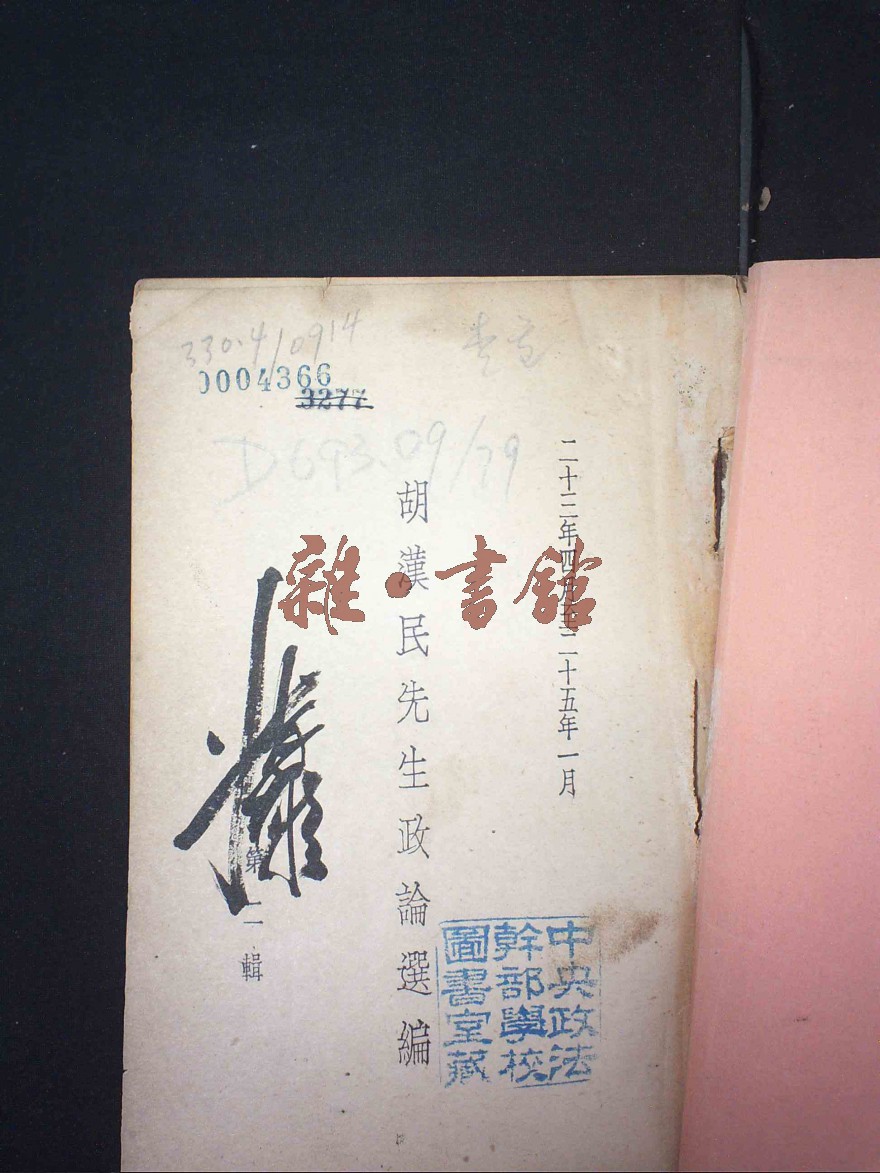 330.4/0914
0004366
3277
D693.09/79
二十三年四月至二十五年一月
胡漢民先生政論選編
第二輯
雜·書館
中央政法
幹部學校
圖書室藏